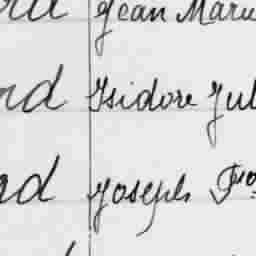 Jean Marie
nd Isidore Jul
nd Joseph